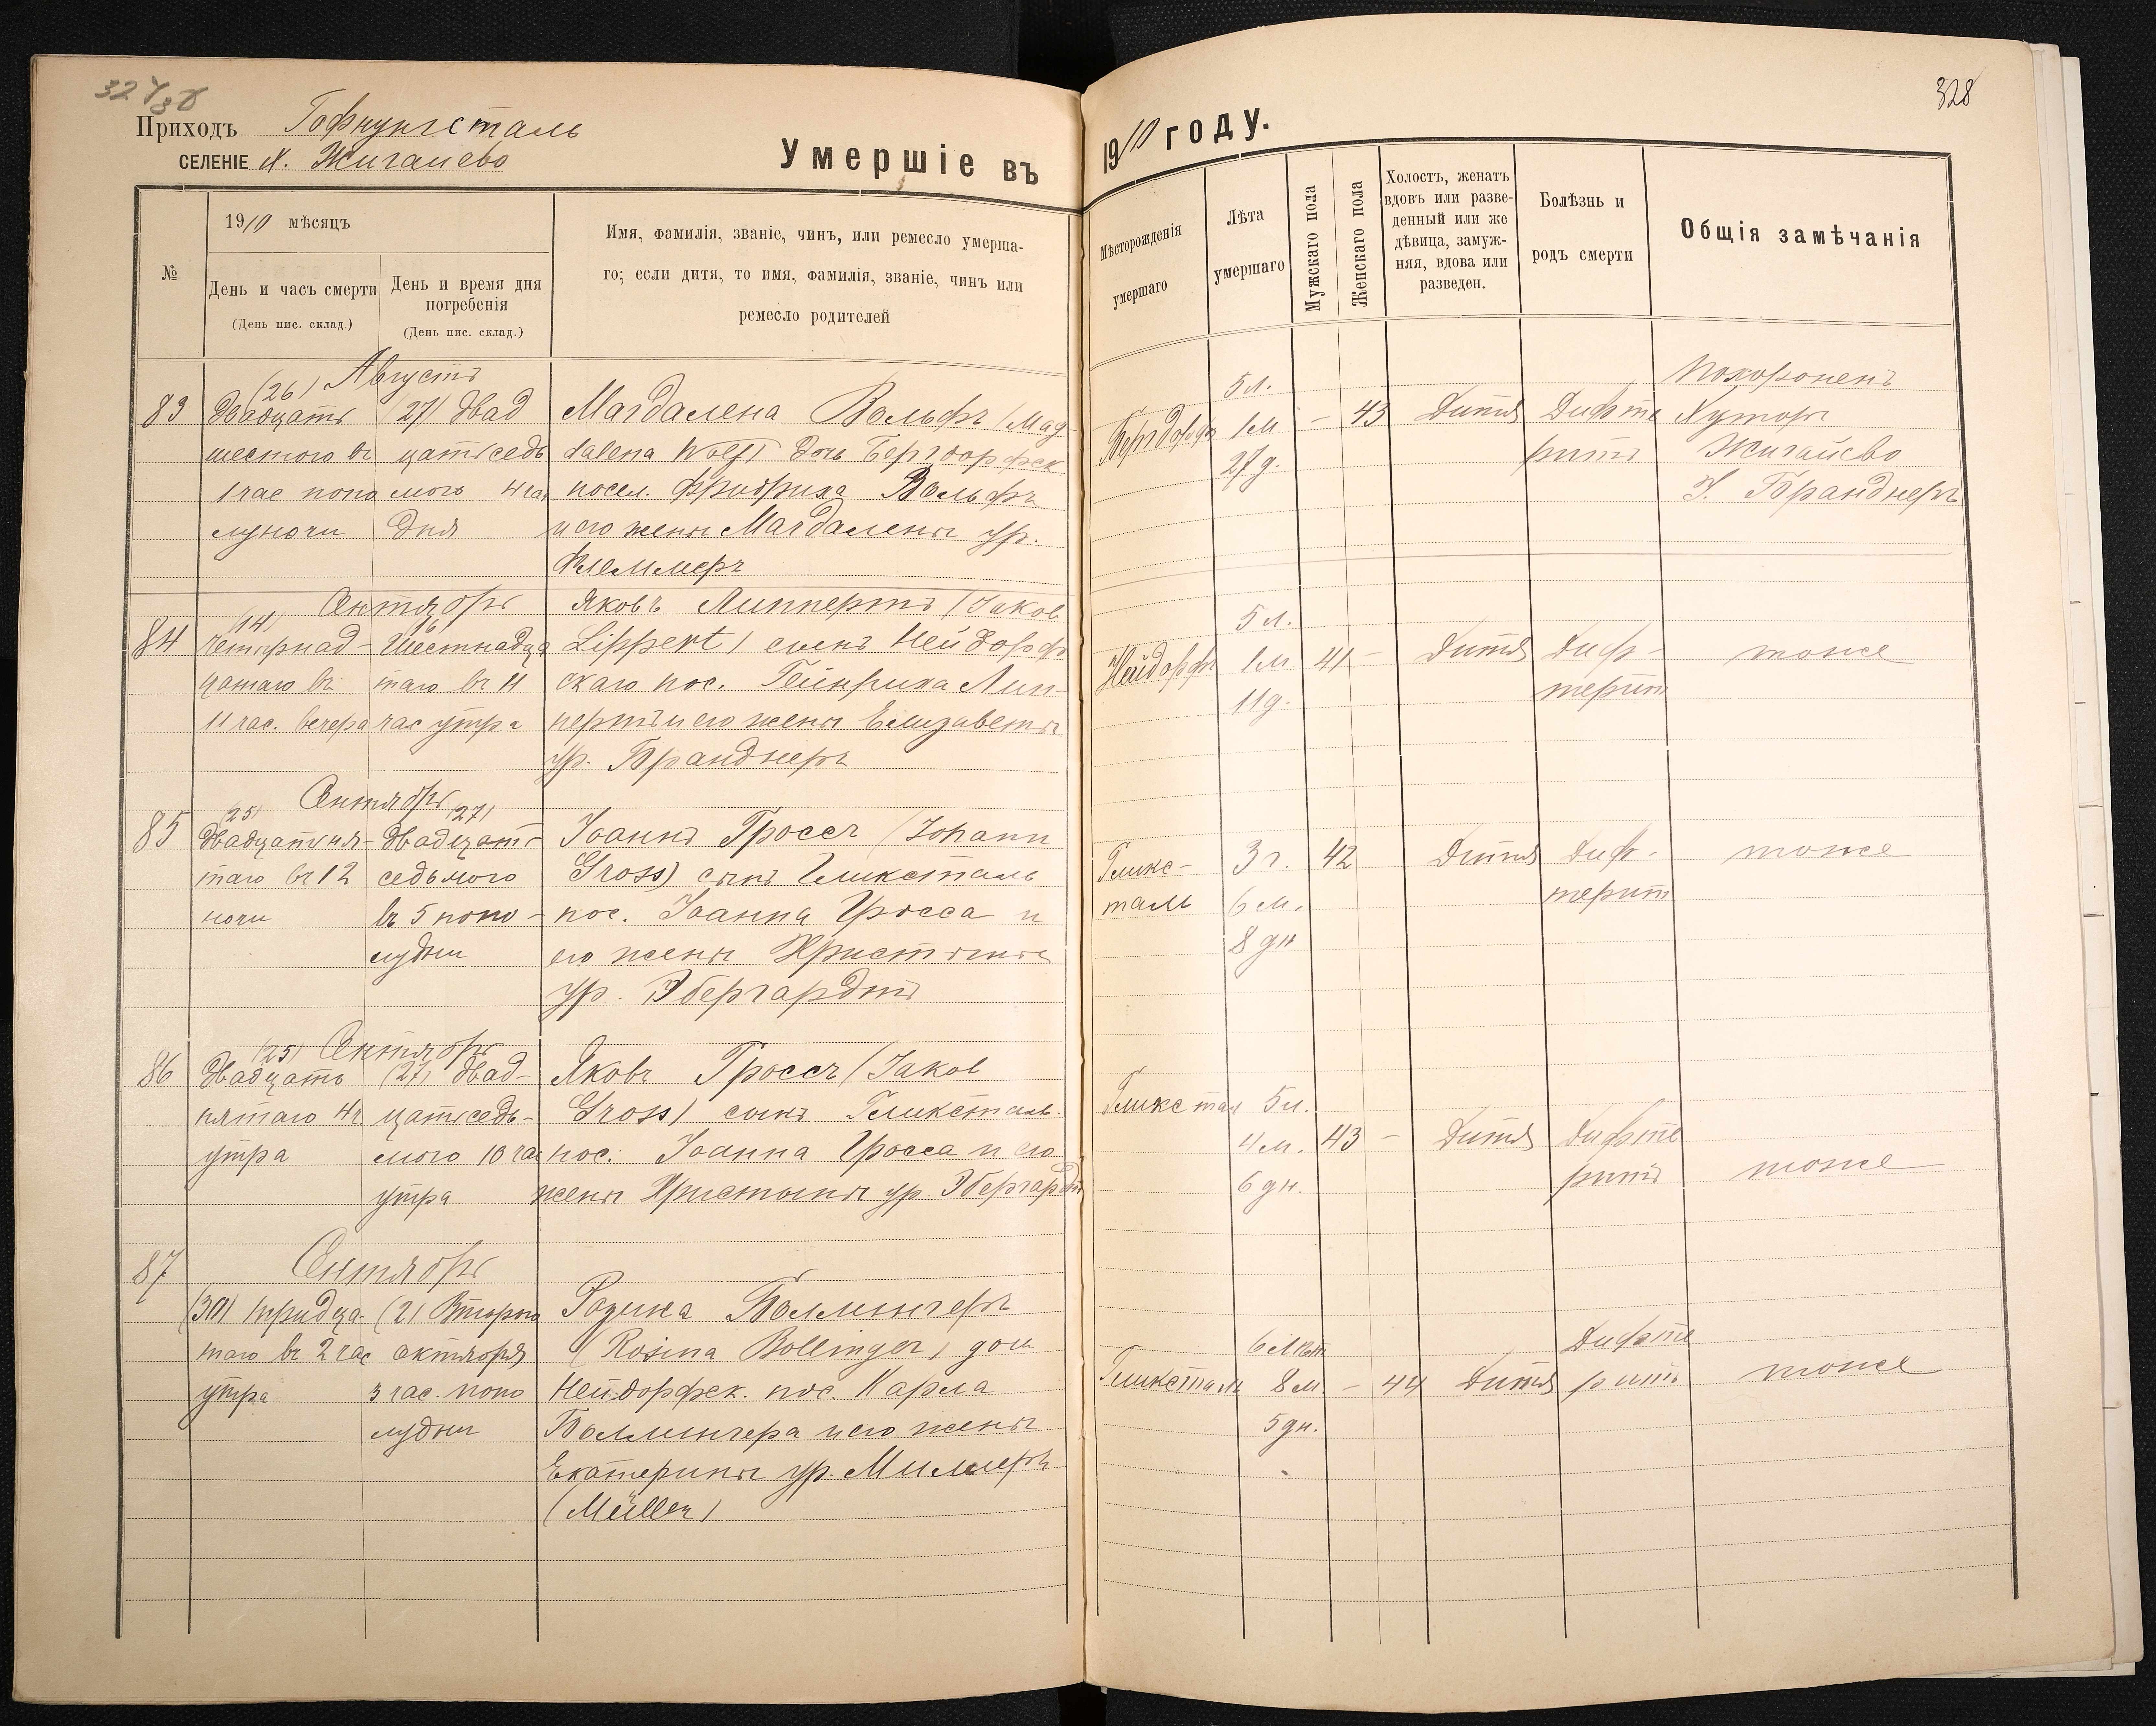 328
Приходъ Гофнунгсталь
СЕЛЕНІЕ х. Жигайево
Умершіе въ 1910 году.
№
1910 мѣсяцъ
День и часъ смерти
(День пис. склад.)
День и время дня
погребенія
(День пис. склад.)
Имя, фамилія, званіе, чинъ, или ремесло умерша-
го; если дитя, то имя, фамилія, званіе, чинъ или
ремесло родителей
Мѣсторожденія
умершаго
Лѣта
умершаго
Мужскаго пола
Женскаго пола
Холостъ, женатъ
вдовъ или разве-
денный или же
дѣвица, замуж-
няя, вдова или
разведен.
Болѣзнь и
родъ смерти
Общія замѣчанія
83
Августъ
(26)
Двадцать
шестого въ
1 час попо
луночи
(27) двад
цатьседь
мого 4 час
дня
Магдалена Вольфъ (Mag-
dalena Wolf) дочь Бергдорфск.
посел. Фридриха Вольфъ
и его жены Магдалены ур.
Флеммеръ
Бергдорфъ
5 л.
1 м
27 д.
– 43
Дитя
Дифте
ритъ
Похороненъ
Хуторъ
Жигайево
І. Бранднеръ
84
Сентябрь
(14)
четырнад-
цатаго въ
11 час. вечера
16
Шестнадца
таго въ 11
час утра
Яковъ Липпертъ (Jakob
Lippert) сынъ Нейдорф
скаго пос. Гейнриха Лип-
пертъ и его жены Елизаветы
ур. Бранднеръ
Нейдорфъ
5 л.
1 м.
11 д.
41 –
Дитя
Диф-
терит
тоже
85
Сентябрь
(25)
Двадцатипя-
таго въ 12
ночи
(27)
Двадцать
седьмого
въ 5 попо-
лудни
Іоаннъ Гроссъ (Johann
Gross) сынъ Гликсталь
пос. Іоанна Гросса и
его жены Христины
ур. Эбергардтъ
Гликс-
таль
3 г.
6 м.
8 дн
42
Дитя
Диф-
терит
тоже
86
Сентябрь
(25)
Двадцать
пятаго 4 ч.
утра
(27) двад-
цатьседь-
мого 10 час
утра
Яковъ Гроссъ (Jakob
Gross) сынъ Гликсталь.
пос. Іоанна Гросса и его
жены Христины ур. Эбергардт
Гликстал
5 л.
4 м.
6 дн.
43 –
Дитя
Дифте
ритъ
тоже
87
Сентябрь
(30) тридца-
таго въ 2 час
утра
(2) Второго
октября
3 час. попо
лудни
Розина Боллингеръ
(Rosina Bollinger) доч
Нейдорфск. пос. Карла
Боллингера и его жены
Екатерины ур. Миллеръ
(Müller)
Гликсталь
6 лѣт
8 м.
5 дн.
– 44
Дитя
Дифте
ритъ
тоже